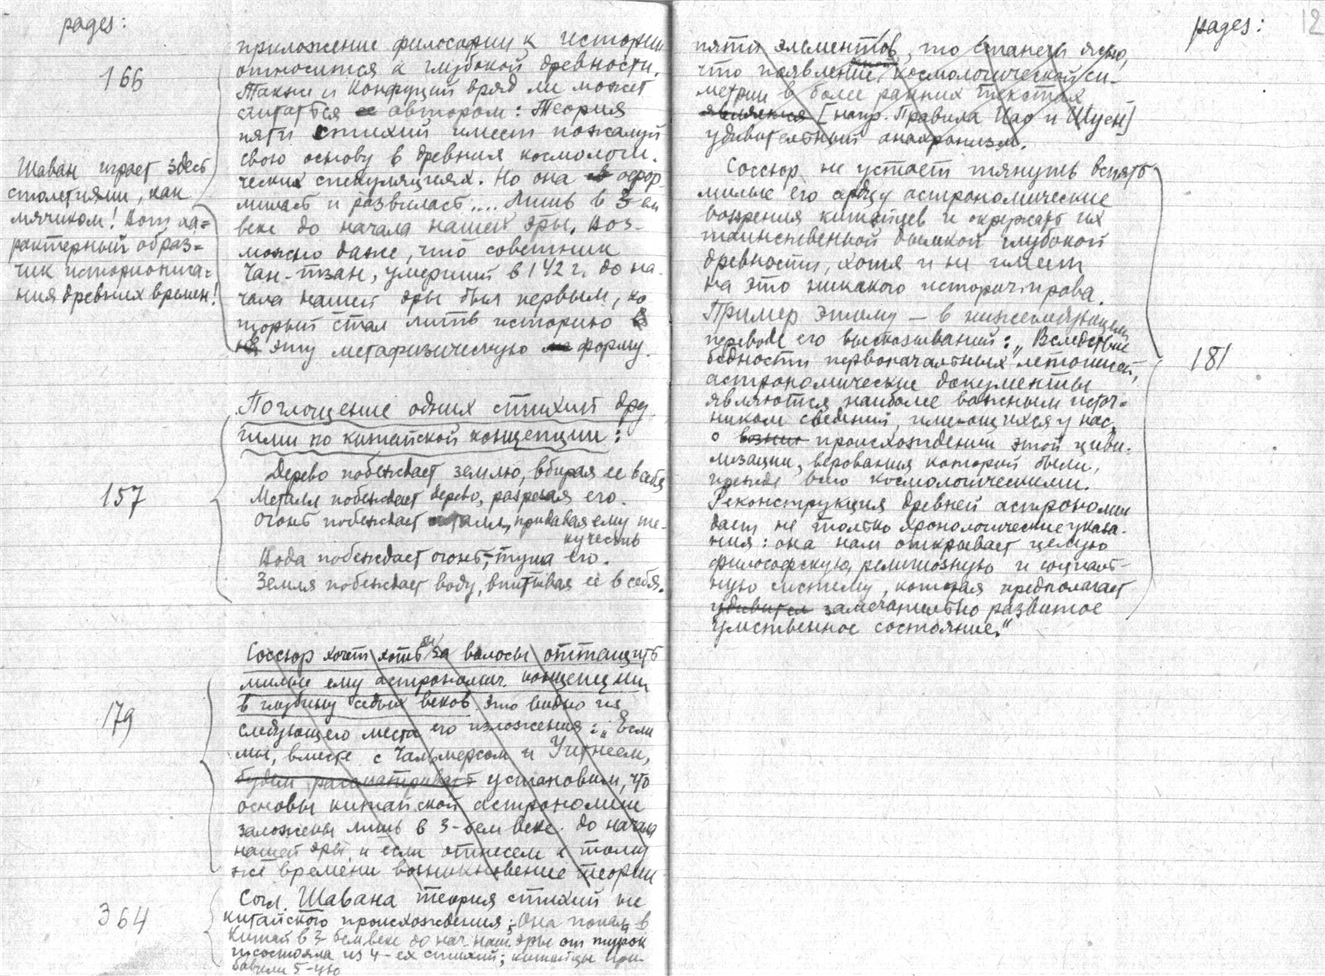 pages:
166
приложение философии к истории
относится к глубокой древности.
Также и Конфуций вряд ли может
считаться автором: Теория
пяти стихий имеет пожалуй
свою основу в древних космологи-
ческих спекуляциях. Но она офор-
милась и развилась.... Лишь в 3-ем
веке до начала нашей эры. Воз-
можно даже, что советник
Чан-тзан, умерший в 142 г. до на-
чала нашей эры был первым, ко
торый стал лить историю в
эту метафизическую форму.
Шаван играет здесь
столетиями, как
мячиком! Вот ха=
рактерный образ=
чик историописа=
ния древних времен!
157
Поглощение одних стихий дру
гими по китайской концепции:
Дерево побеждает землю, вбирая её в себя
Металл побеждает дерево, разрезая его.
Огонь побеждает металл, придавая ему те-
кучесть
Вода побеждает огонь, туша его.
Земля побеждает воду, впитывая её в себя.
179
Соссюр хочет хоть бы за волосы оттащить
милые ему астрономич. концепции
в глубину седых веков. Это видно из
следующего места его изложения: „Если
мы, вместе с Чальмерсом и Уитнеем,
будем рассматривать установим, что
основы китайской астрономии
заложены лишь в 3-ьем веке до начала
нашей эры, и если отнесем к тому
же времени возникновение теории
364
Согл. Шавана теория стихий не
китайского происхождения; Она попала в
Китай в 3-ьем веке до нач. наш. эры от турок
и состояла из 4-ех стихий; китайцы при
бавили 5-ую
pages: 12
пяти элементов, то станет ясно,
что появление космологической си-
метрии в более ранних текстах
является [напр. Правила Иао и Шуен]
удивительный анахронизм.
Соссюр не устает тянуть вспять
милые его сердцу астрономические
воззрения китайцев и окружать их
таинственной дымкой глубокой
древности, хотя и не имеет
на это никакого историч. права.
Пример этому — в нижеследующем
переводе его высказываний: „Вследствие
бедности первоначальных летописей,
астрономические документы
являются наиболее важным источ=
ником сведений, имеющихся у нас
о происхождении этой циви-
лизации, верования которой были,
прежде всего космологическими.
Реконструкция древней астрономии
дает не только хронологические указа-
ния: она нам открывает целую
философскую, религиозную и социаль-
ную систему, которая предполагает
замечательно развитое
умственное состояние."
181